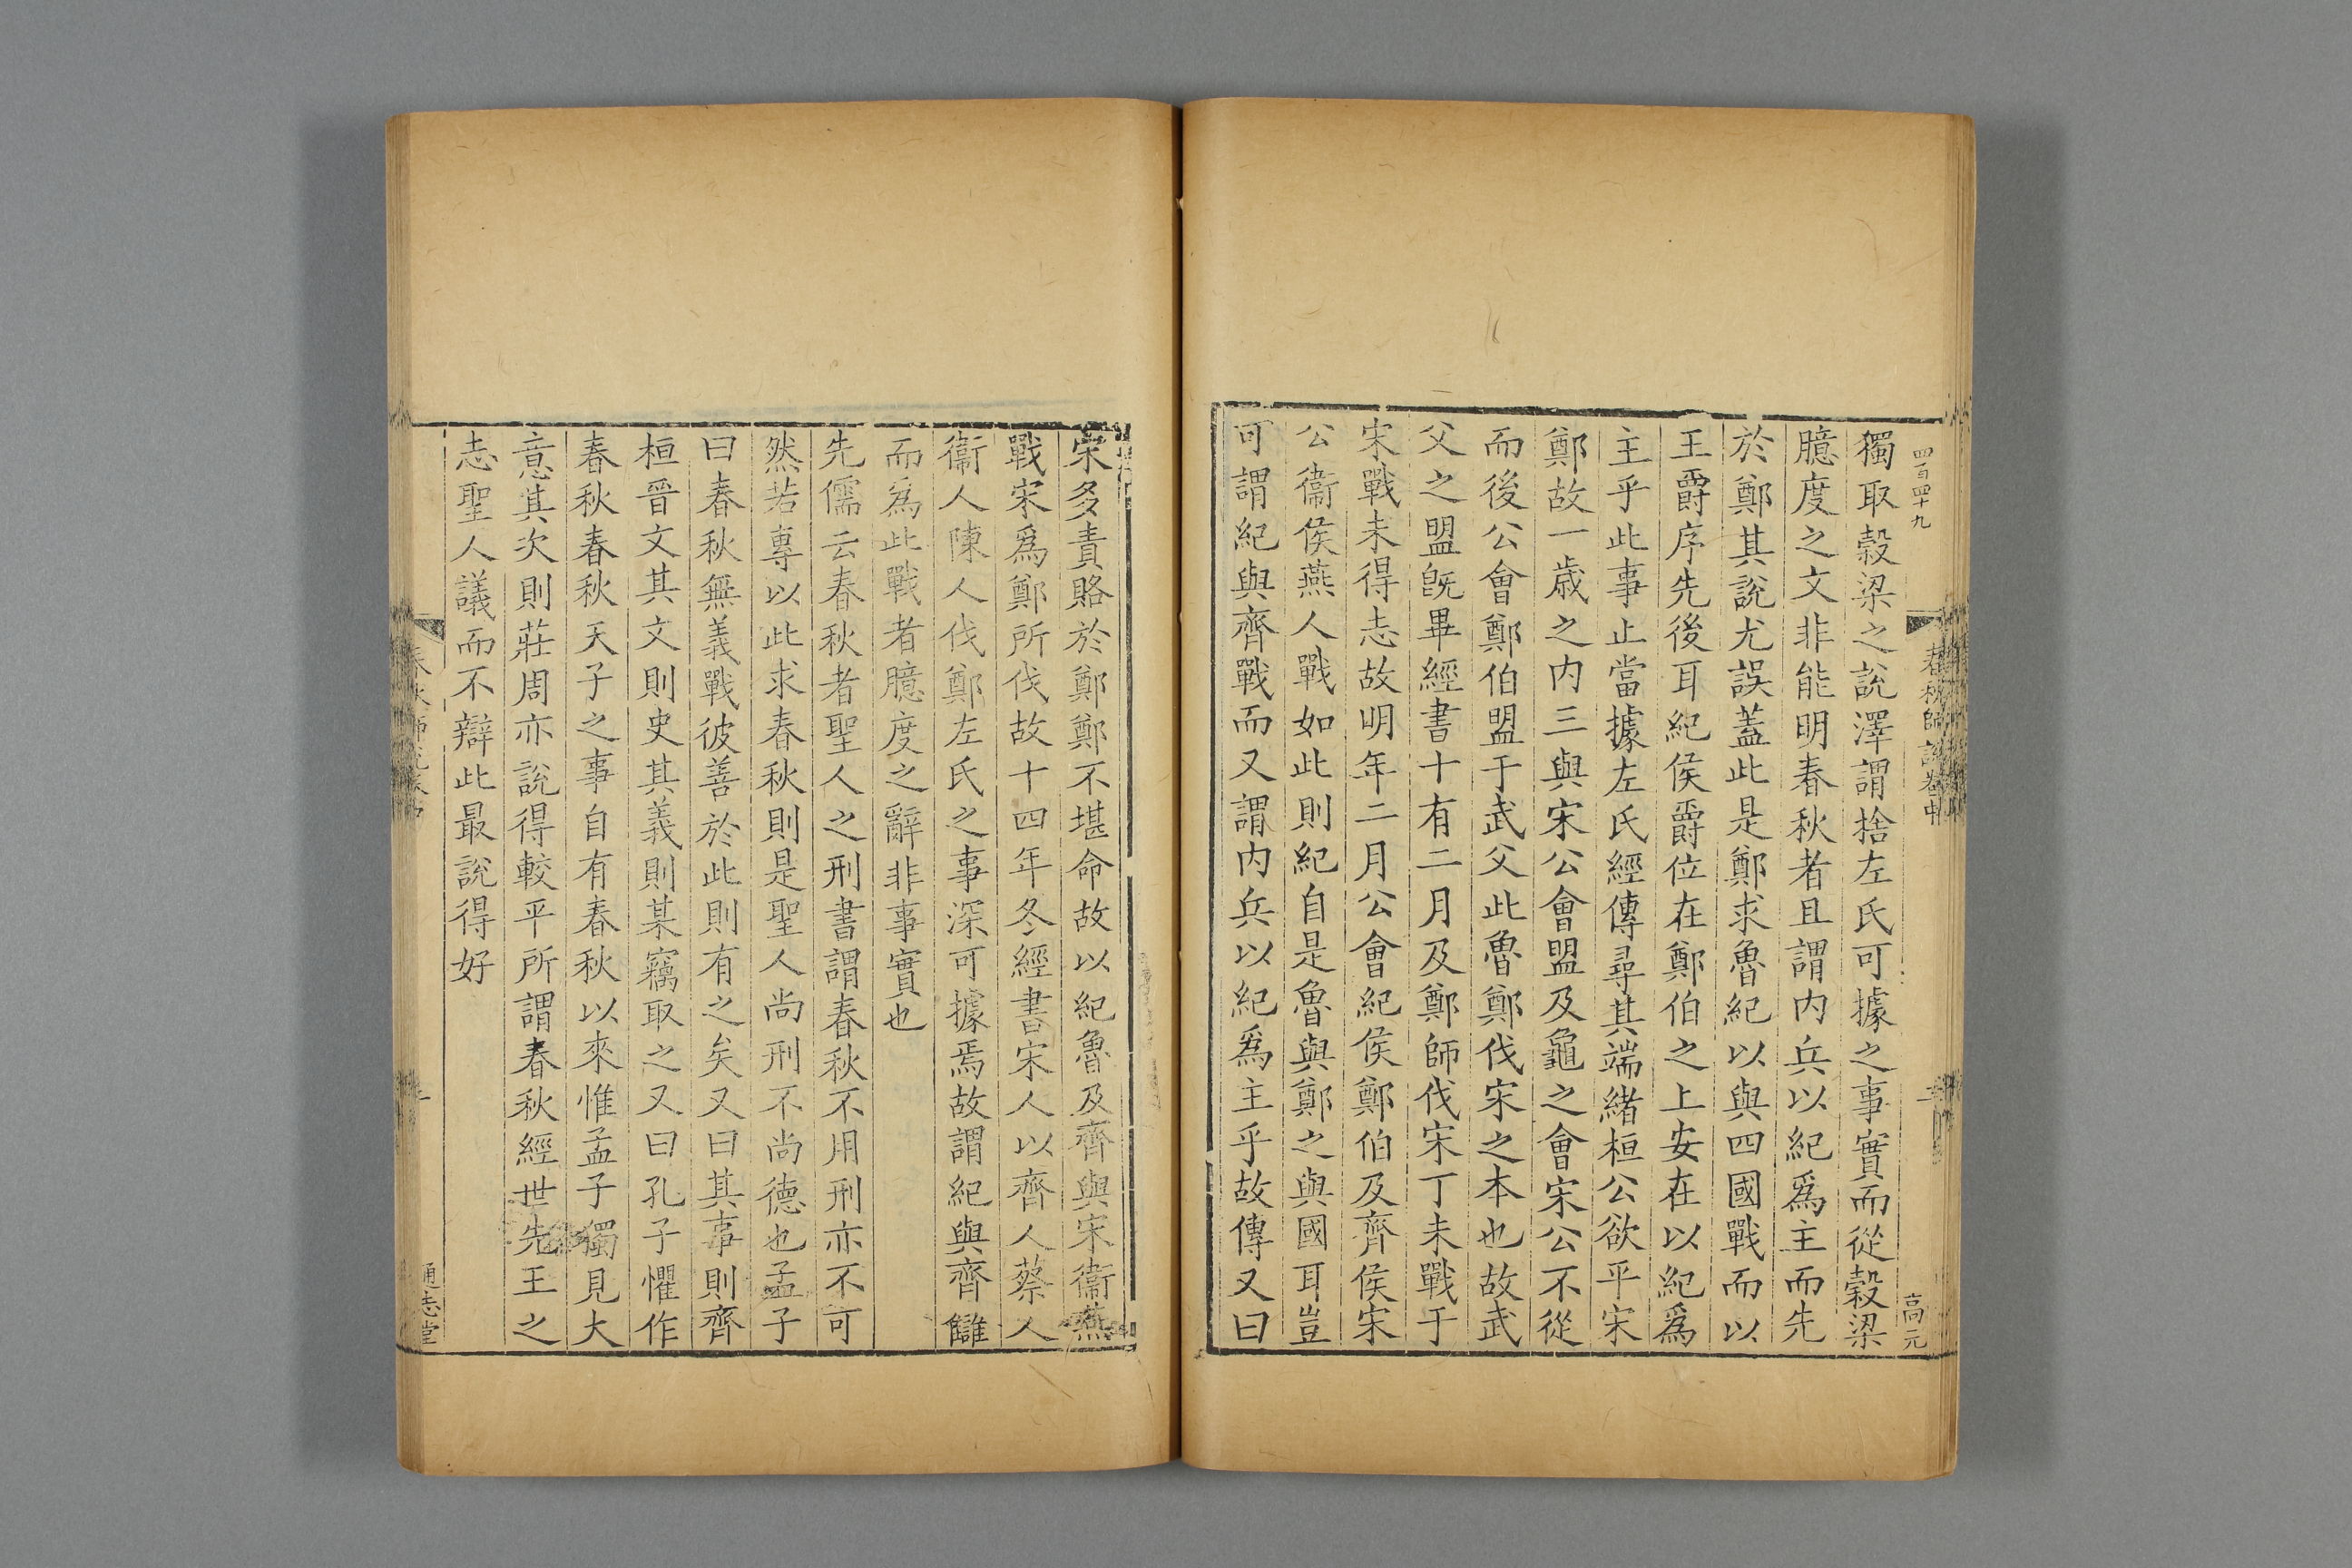 四百四十九
春秋師說卷中
高元
獨取穀梁之說澤謂捨左氏可據之事實而從穀梁
臆度之文非能明春秋者且謂内兵以紀爲主而先
於鄭其說尤誤蓋此是鄭求魯紀以與四國戰而以
王爵序先後耳紀侯爵位在鄭伯之上安在以紀爲
主乎此事止當據左氏經傳尋其端緒桓公欲平宋
鄭故一歲之内三與宋公會盟及龜之會宋公不從
而後公會鄭伯盟于武父此魯鄭伐宋之本也故武
父之盟旣畢經書十有二月及鄭師伐宋丁未戰于
宋戰未得志故明年二月公會紀侯鄭伯及齊侯宋
公衞侯燕人戰如此則紀自是魯與鄭之與國耳豈
可謂紀與齊戰而又謂内兵以紀爲主乎故傳又曰
宋多責賂於鄭鄭不堪命故以紀魯及齊與宋衞燕
戰宋爲鄭所伐故十四年冬經書宋人以齊人蔡人
衞人陳人伐鄭左氏之事深可據焉故謂紀與齊讎
而爲此戰者臆度之辭非事實也
先儒云春秋者聖人之刑書謂春秋不用刑亦不可
然若專以此求春秋則是聖人尚刑不尚德也孟子
曰春秋無義戰彼善於此則有之矣又曰其事則齊
桓晉文其文則史其義則某竊取之又曰孔子懼作
春秋春秋天子之事自有春秋以來惟孟子獨見大
意其次則莊周亦說得較平所謂春秋經世先王之
志聖人議而不辯此最說得好
通志堂